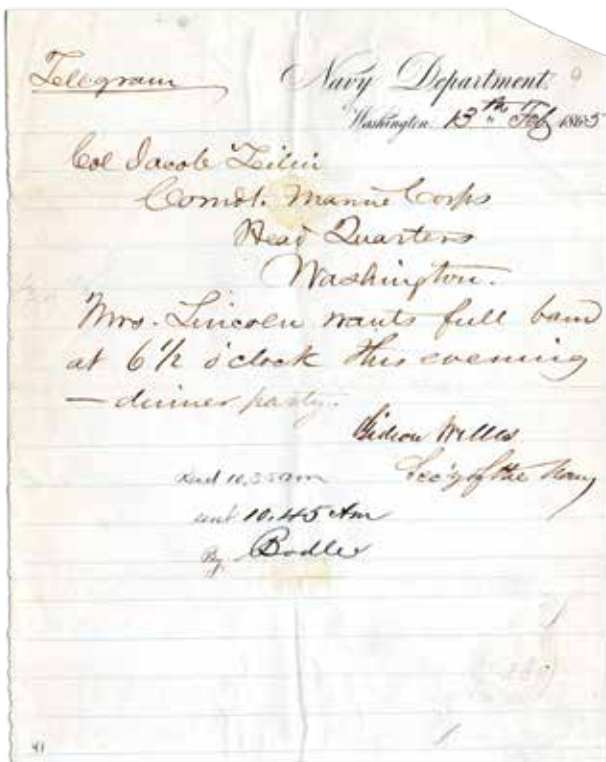 Telegram
Navy Department.
Washington. 13th Feb 1865
Col Jacob Zeilin
Comdt. Marine Corps
Head Quarters
Washington.
Mrs. Lincoln wants full band
at 6½ o'clock this evening
— dinner party.
Gideon Welles
Sec'y of the Navy
Recd 10.35 am
sent 10.45 Am
By Bodler
41